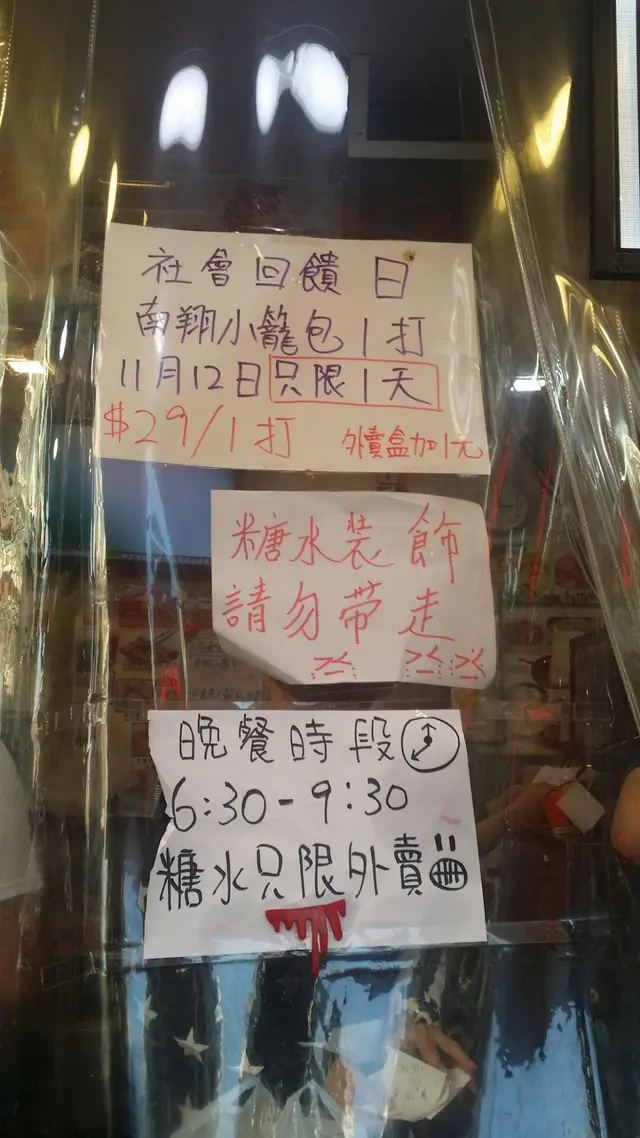 社會回饋日
南翔小籠包1打
11月12日只限1天
$29/1打 外賣盒加1元
糖水裝飾
請勿带走
晚餐時段
6:30-9:30
糖水只限外賣